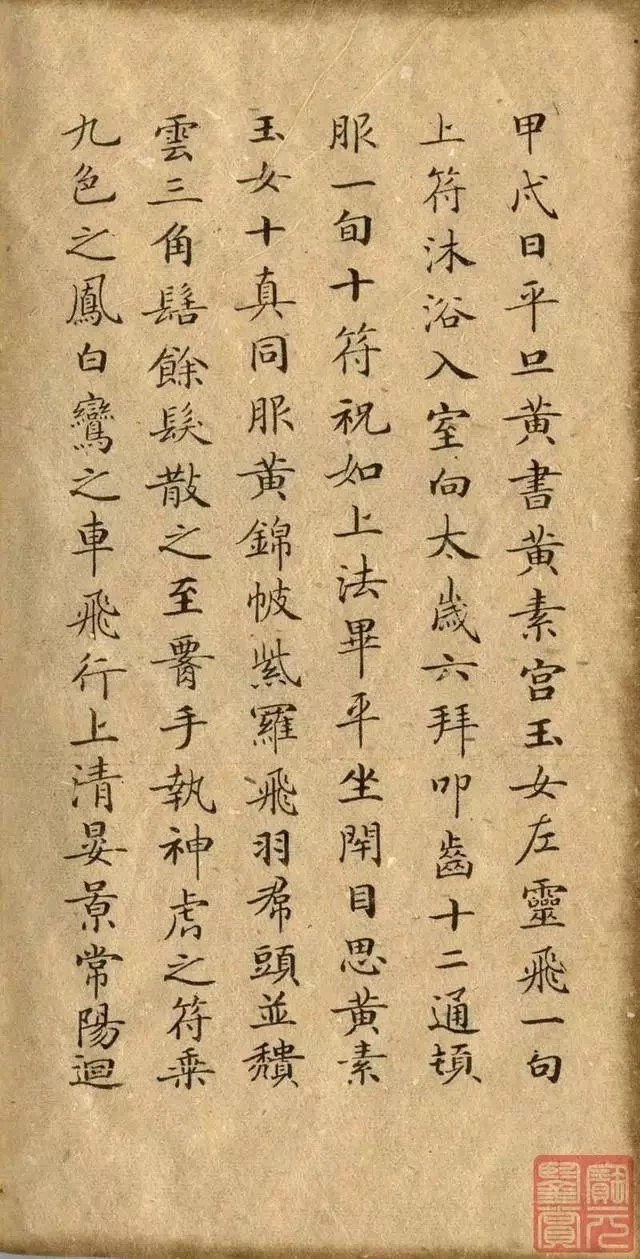 甲戌日平旦黄書黄素宫玉女左靈飛一旬
上符沐浴入室向太歲六拜叩齒十二通頓
服一旬十符祝如上法畢平坐閇目思黄素
玉女十真同服黄錦帔紫羅飛羽帬頭並頽
雲三角髻餘髮散之至䯗手執神虎之符乗
九色之鳳白鸞之車飛行上清晏景常陽迴